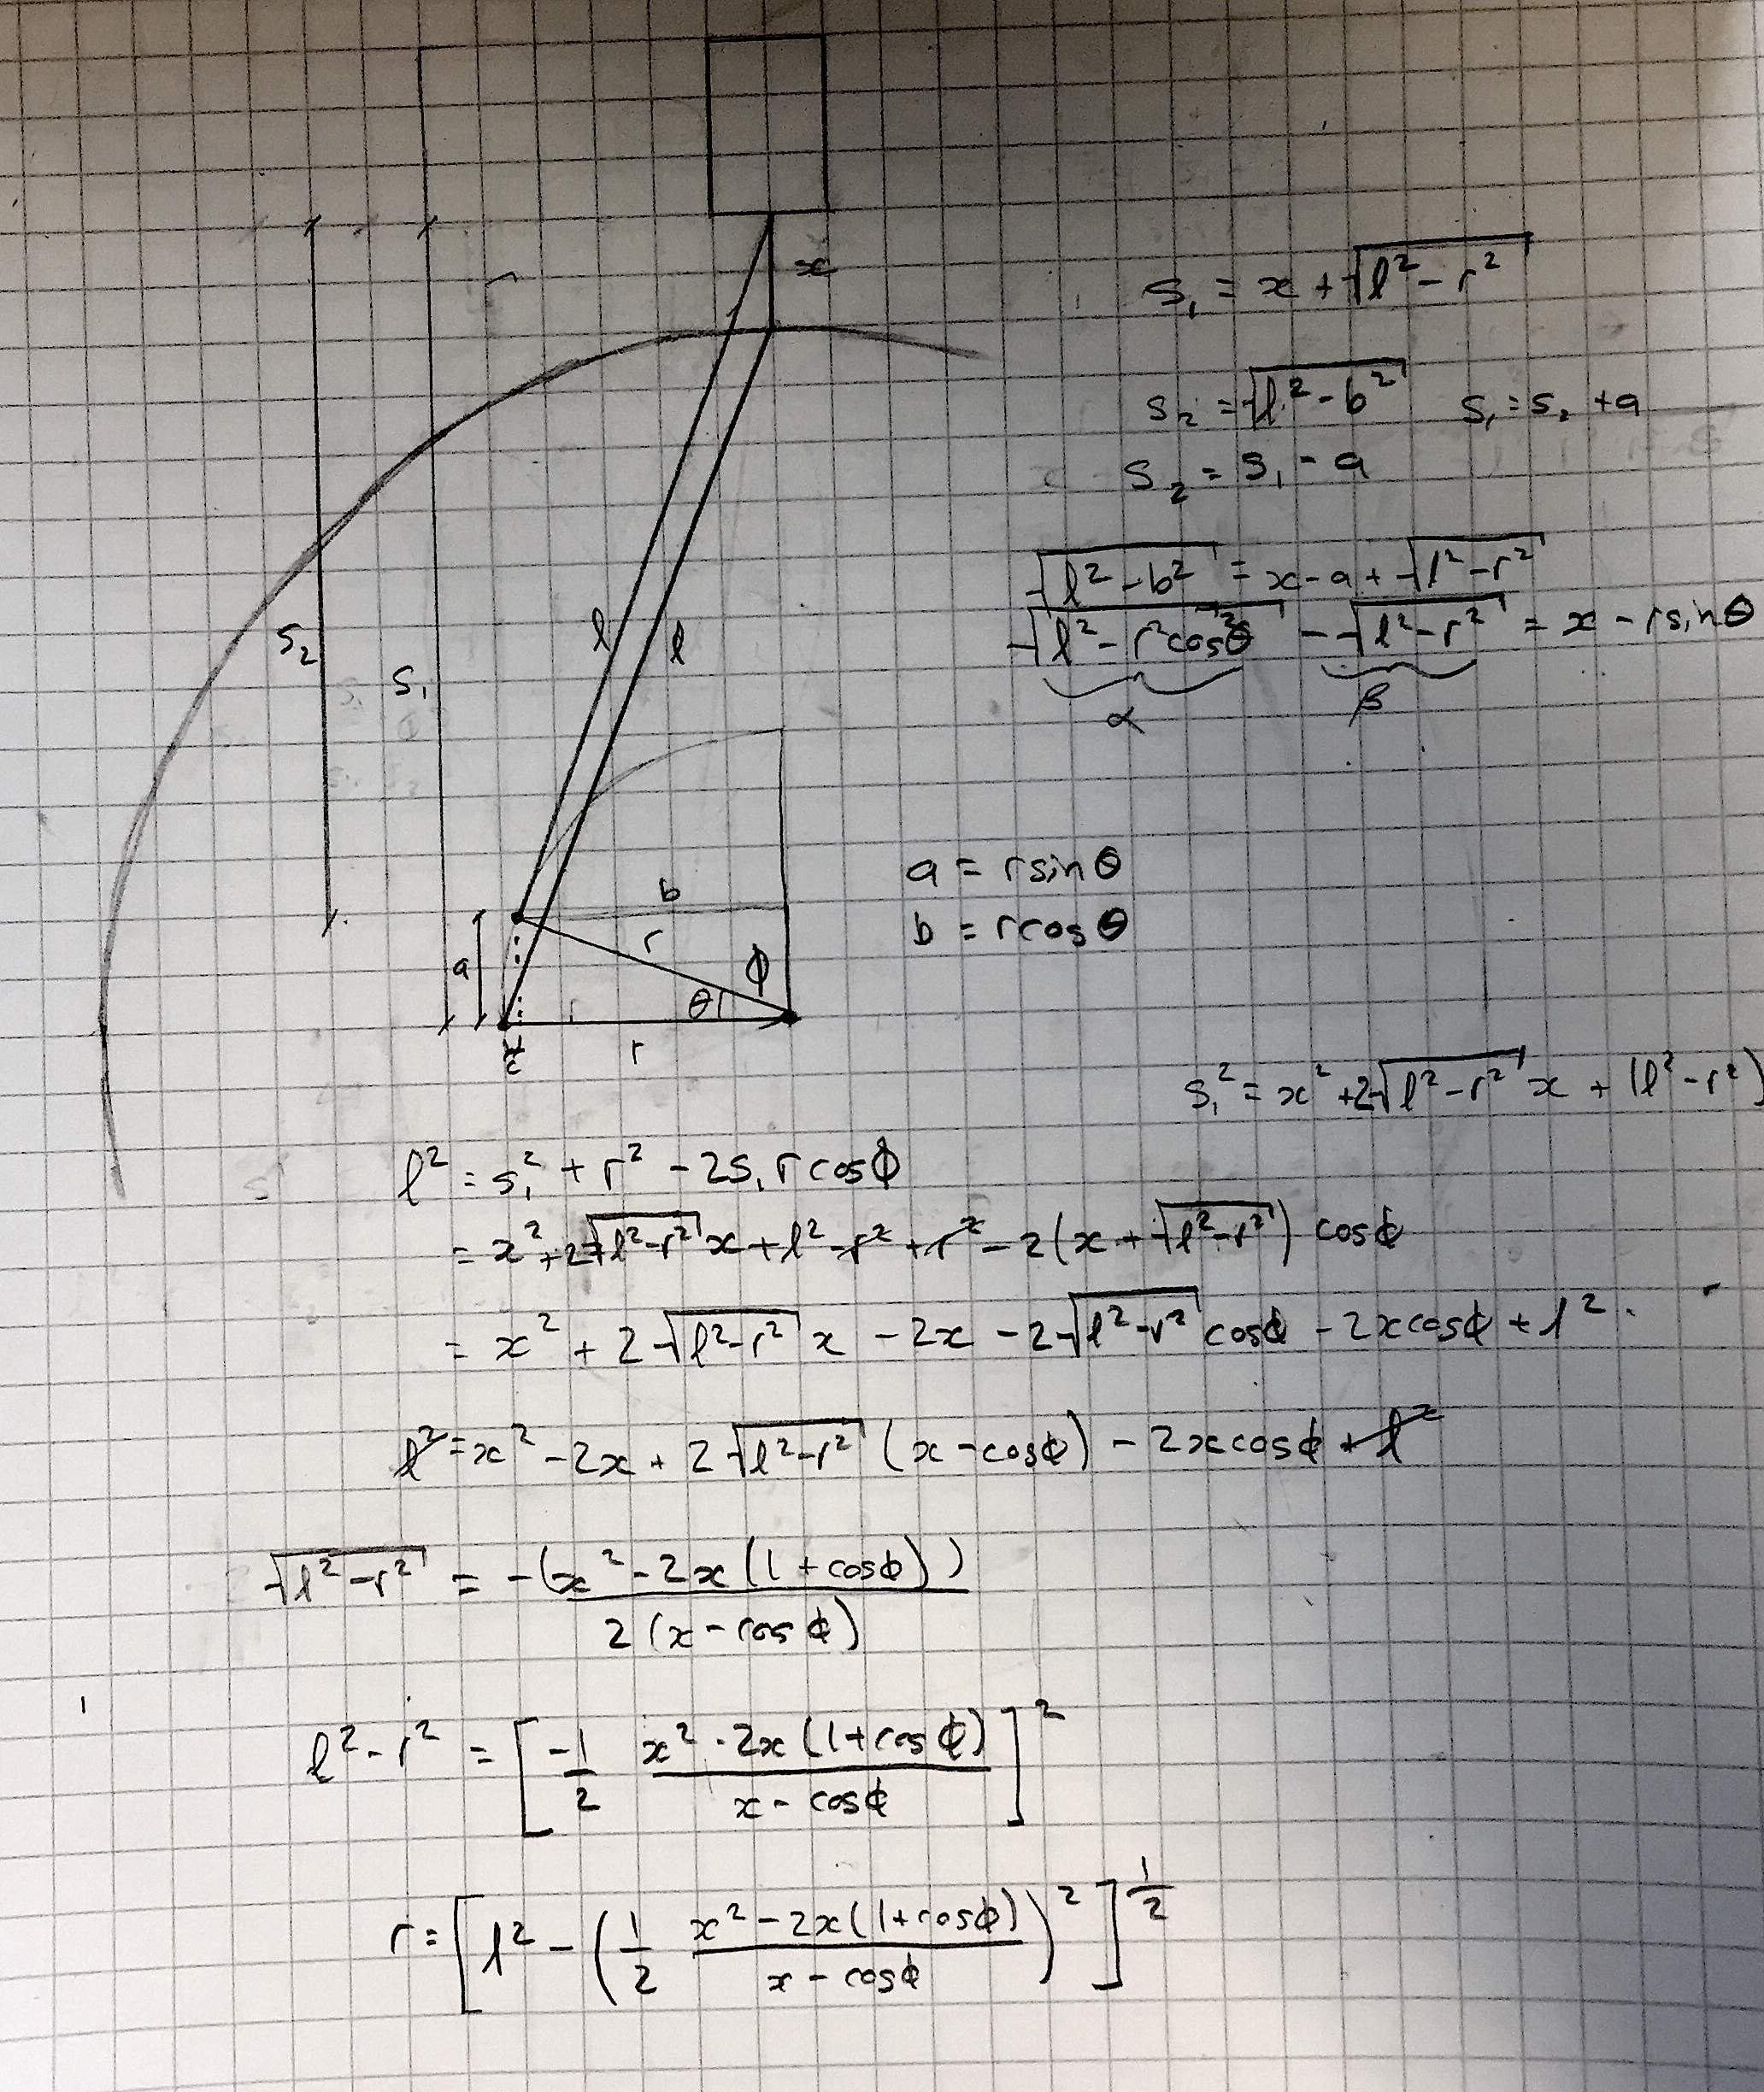 x
s₁ = x + √(l² - r²)
s₂ = √(l² - b²)    s₁ = s₂ + a
s₂ = s₁ - a
√(l² - b²) = x - a + √(l² - r²)
√(l² - r²cos²θ) - √(l² - r²) = x - r sin θ
α    β
s₂
s₁
l
l
a = r sin θ
b = r cos θ
b
r
ϕ
a
θ
r
s₁² = x² + 2√(l² - r²) x + (l² - r²)
l² = s₁² + r² - 2s₁ r cos ϕ
= x² + 2√(l² - r²) x + l² - r² + r² - 2(x + √(l² - r²)) cos ϕ
= x² + 2√(l² - r²) x - 2x - 2√(l² - r²) cos ϕ - 2x cos ϕ + l²
l² = x² - 2x + 2√(l² - r²) (x - cos ϕ) - 2x cos ϕ + l²
√(l² - r²) = -(x² - 2x(1 + cos ϕ)) / 2(x - cos ϕ)
l² - r² = [-1/2 (x² - 2x(1 + cos ϕ)) / (x - cos ϕ)]²
r = [l² - (1/2 (x² - 2x(1 + cos ϕ)) / (x - cos ϕ))²]^(1/2)